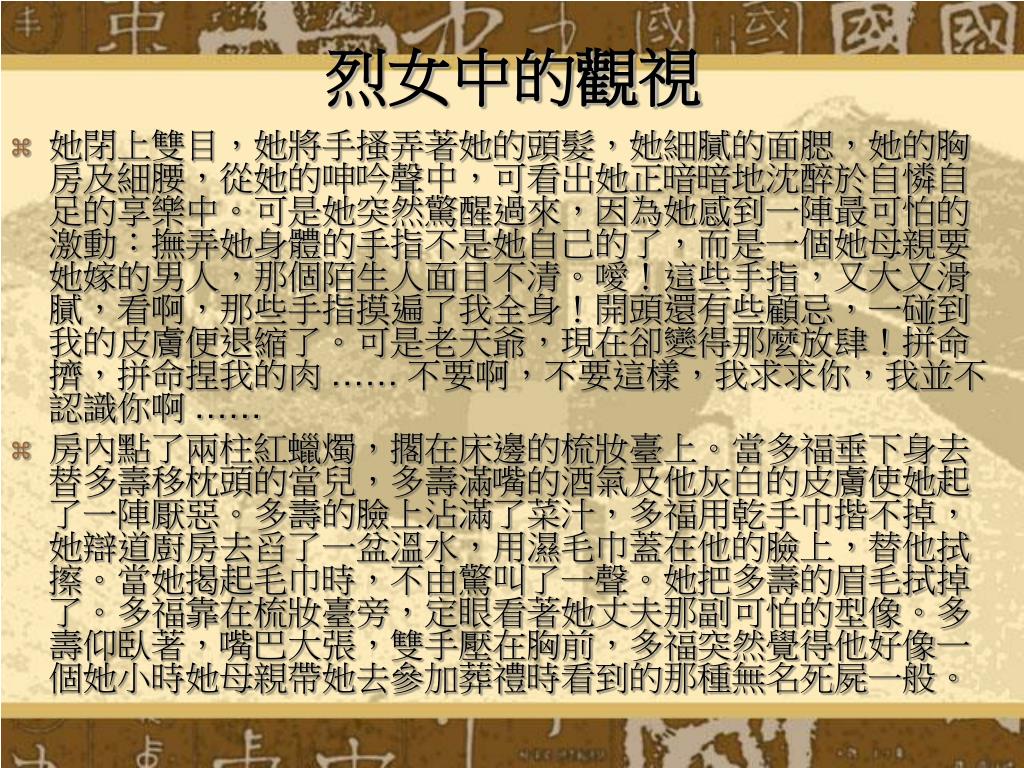 烈女中的觀視
她閉上雙目，她將手搔弄著她的頭髮，她細膩的面腮，她的胸
房及細腰，從她的呻吟聲中，可看出她正暗暗地沈醉於自憐自
足的享樂中。可是她突然驚醒過來，因為她感到一陣最可怕的
激動：撫弄她身體的手指不是她自己的了，而是一個她母親要
她嫁的男人，那個陌生人面目不清。噯！這些手指，又大又滑
膩，看啊，那些手指摸遍了我全身！開頭還有些顧忌，一碰到
我的皮膚便退縮了。可是老天爺，現在卻變得那麼放肆！拼命
擠，拼命捏我的肉 …… 不要啊，不要這樣，我求求你，我並不
認識你啊 ……
房內點了兩柱紅蠟燭，擱在床邊的梳妝臺上。當多福垂下身去
替多壽移枕頭的當兒，多壽滿嘴的酒氣及他灰白的皮膚使她起
了一陣厭惡。多壽的臉上沾滿了菜汁，多福用乾手巾揩不掉，
她辯道廚房去舀了一盆溫水，用濕毛巾蓋在他的臉上，替他拭
擦。當她揭起毛巾時，不由驚叫了一聲。她把多壽的眉毛拭掉
了。多福靠在梳妝臺旁，定眼看著她丈夫那副可怕的型像。多
壽仰臥著，嘴巴大張，雙手壓在胸前，多福突然覺得他好像一
個她小時她母親帶她去參加葬禮時看到的那種無名死屍一般。